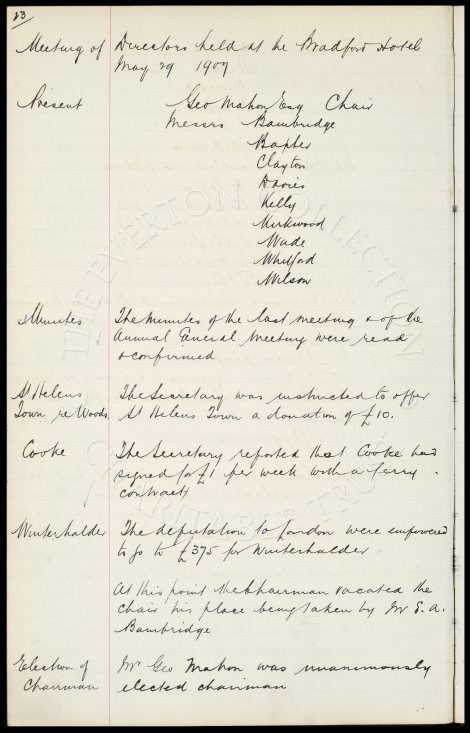 23
Meeting of Directors held at the Bradford Hotel
May 29 1907
Present Geo Mahon Esq Chair
Messrs Bainbridge
Baxter
Clayton
Davies
Kelly
Kirkwood
Wade
Whitford
Wilson
Minutes The Minutes of the last meeting & of the
Annual General Meeting were read
& confirmed
St Helens The Secretary was instructed to offer
Town re Woods. St Helens Town a donation of £10.
Cooke The Secretary reported that Cooke had
signed for £1 per week with a ferry
contract
Winterhalder The deputation to London were empowered
to go to £375 for Winterhalder.
At this point the Chairman vacated the
chair his place being taken by Mr E. A.
Bainbridge
Election of Mr Geo Mahon was unanimously
Chairman elected chairman
THE EVERTON COLLECTION
CHARITABLE TRUST